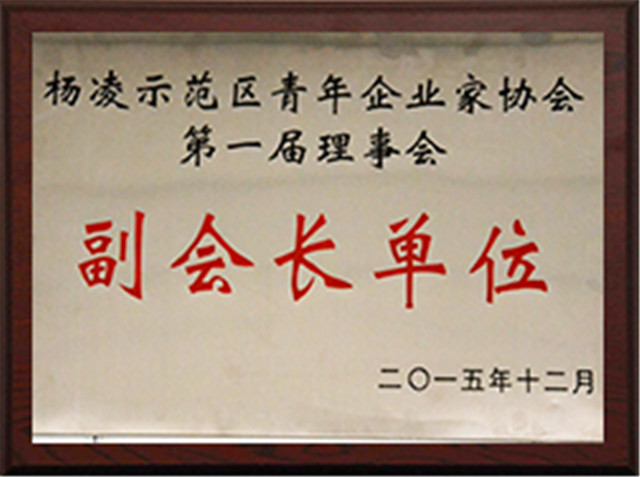 杨凌示范区青年企业家协会
第一届理事会
副会长单位
二〇一五年十二月